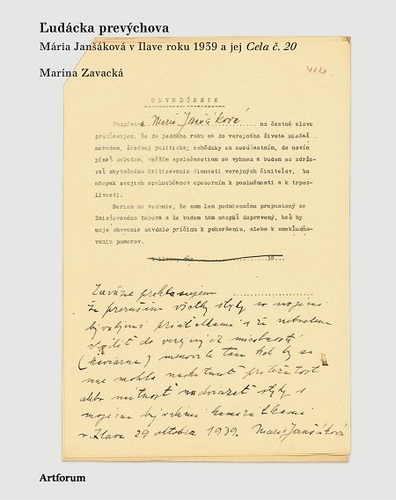 Ľudácka prevýchova
Mária Janšáková v Ilave roku 1939 a jej Cela č. 20
Marína Zavacká
416
O S V E D Č E N I E
Podpísaná Mária Janšáková na čestné slovo
prehlasujem, že do jedného roku sa do verejného života miešať
nebudem, žiadnej politickej schôdzky sa nezúčastním, do novín
písať nebudem, väčším spoločnostiam sa vyhnem a budem sa zdržo-
vať zbytočného kritizovania činnosti verejných činiteľov,
naopak svojich spoluobčanov upozorním k poslušnosti a k trpez-
livosti.
Beriem na vedomie, že som len podmienečne prepustený zo
Zaisťovacieho tábora a že budem tam naspäť dopravený, keď by
moje chovanie zavdalo príčinu k pohoršeniu, alebo k
pomerov.
Záväzne prehlasujem
že preruším všetky styky so svojimi
bývalými priateľkami a že nebudem
do verejných miestností
(kaviarne) menovite tam kde by sa
mne mohla naskytnúť príležitosť
alebo možnosť nadviazať styky s
mojimi bývalými kamarátkami
v Ilave 29 októbra 1939. Mária Janšáková
Artforum